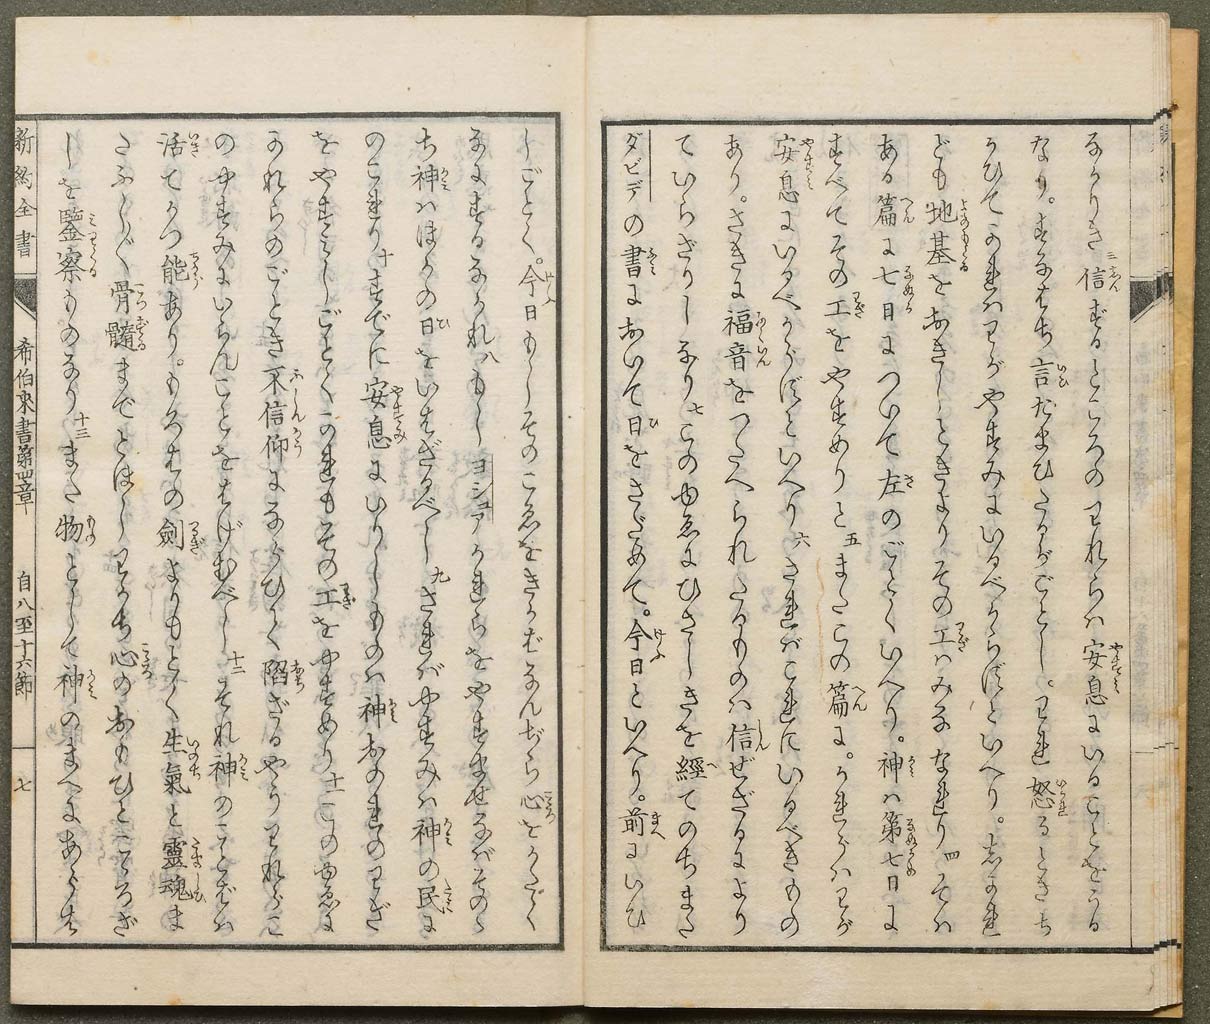 ながりき三信ずるところのわれらは安息にいることをうる
なり。すなはち言たまひたるがごとし。われ怒るときち
かひてかれはわがやすみにいるべからずといへり。しかれ
ども地基をおきしときよりその工はみななれり四そは
ある篇に七日について左のごとくいへり。神は第七日に
すべてその工をやすめりと五またこの篇に。かれらはわが
安息にいるべからずといへり六さればこれにいるべきもの
あり。さきに福音をつたへられたるものは信ぜざるにより
ていらざりしなり七このゆゑにひさしきを經てのちまた
ダビデの書において日をさだめて。今日といへり。前にいひ
しごとく。今日もしそのこゑをきかばなんぢら心をかたく
なにするなかれ八もしヨシュアかれらをやすませなばそのゝ
ち神はほかの日をいはざるべし九さればやすみは神の民に
のこれり十すでに安息にいりしものは神おのれのわざ
をやすみしごとくかれもその工をやすめり十一このゆゑに
われらのごとき不信仰にならひて陷ざるやうわれらこ
の中すみにいらんことをはげむべし十二それ神のことばは
活てかつ能あり。もろはの劍よりもとく生氣と靈魂ま
たふしぶし骨髓までとほしわかち心のおもひとこゝろざ
しを鑒察ものなり十三また物として神のまへにあらは
新約全書 希伯來書第四章 自八至十六節 七